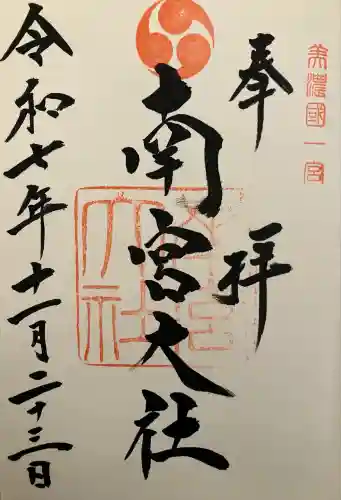 美濃國一宮
奉拝
南宮大社
令和七年十一月二十三日